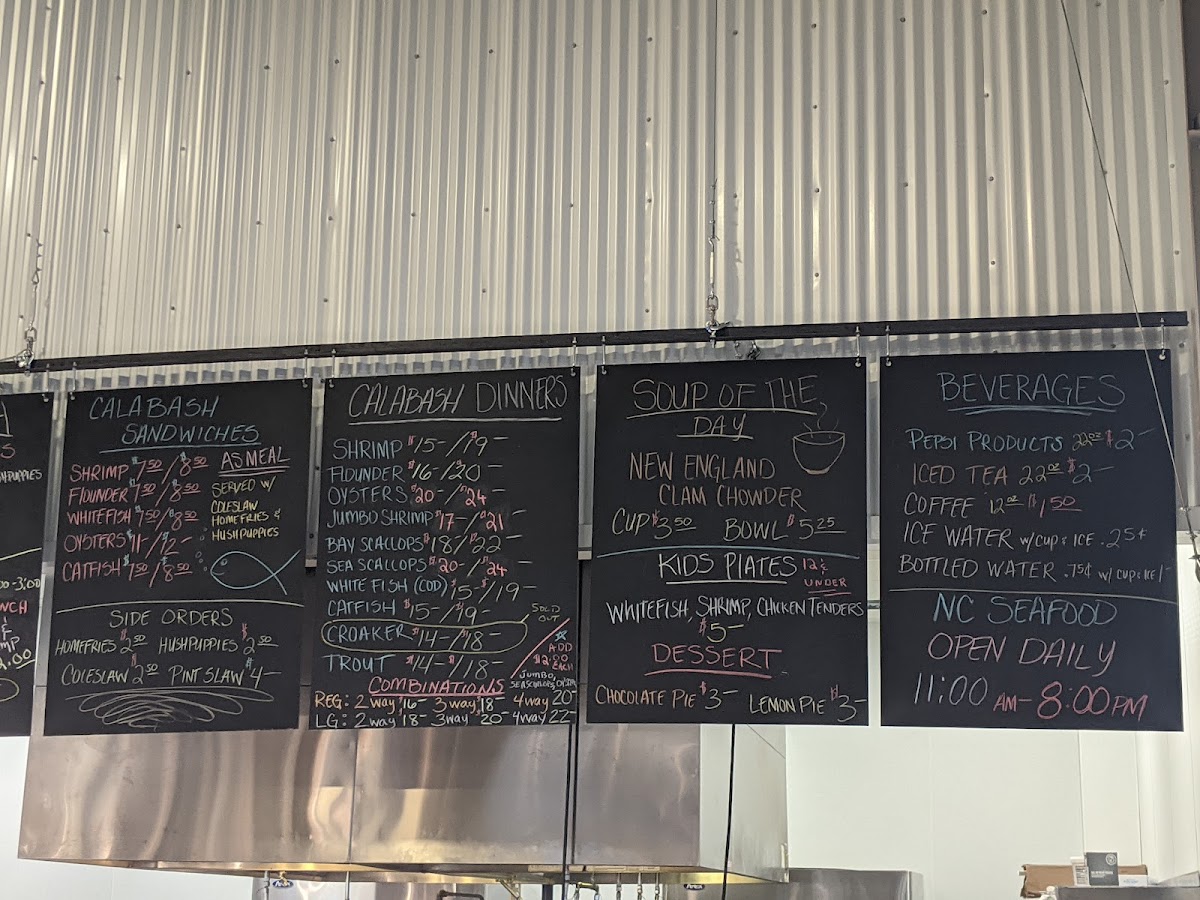 HPUPPIES
0-3:00
NCH
&
MP
2.00
CALABASH
SANDWICHES
SHRIMP $7 50 / $8 50
FLOUNDER $7 50 / $8 50
WHITEFISH $7 50 / $8 50
OYSTERS $11- / $12-
CATFISH $7 50 / $8 50
AS MEAL
SERVED W/
COLESLAW
HOMEFRIES &
HUSHPUPPIES
SIDE ORDERS
HOMEFRIES $2 50 HUSHPUPPIES $2 50
COLESLAW $2 50 PINT SLAW $4-
CALABASH DINNERS
SHRIMP $15- / $19-
FLOUNDER $16- / $20-
OYSTERS $20- / $24-
JUMBO SHRIMP $17- / $21-
BAY SCALLOPS $18- / $22-
SEA SCALLOPS $20- / $24-
WHITE FISH (COD) $15- / $19-
CATFISH $15- / $19-
CROAKER $14- / $18-
SOLD
OUT
TROUT $14- / $18-
ADD
$2.00
EACH
JUMBO,
SEA SCALLOPS, OYSTER
COMBINATIONS
REG: 2 WAY $16- 3 WAY $18- 4 WAY 20-
LG: 2 WAY $18- 3 WAY $20- 4 WAY 22-
SOUP OF THE
DAY
NEW ENGLAND
CLAM CHOWDER
CUP $3 50 BOWL $5 25
KIDS PLATES 12 &
UNDER
WHITEFISH, SHRIMP, CHICKEN TENDERS
$5-
DESSERT
CHOCOLATE PIE $3- LEMON PIE $3-
BEVERAGES
PEPSI PRODUCTS 22oz $2-
ICED TEA 22oz $2-
COFFEE 12oz $1.50
ICE WATER W/CUP & ICE .25¢
BOTTLED WATER .75¢ W/CUP & ICE 1-
NC SEAFOOD
OPEN DAILY
11:00 AM - 8:00 PM